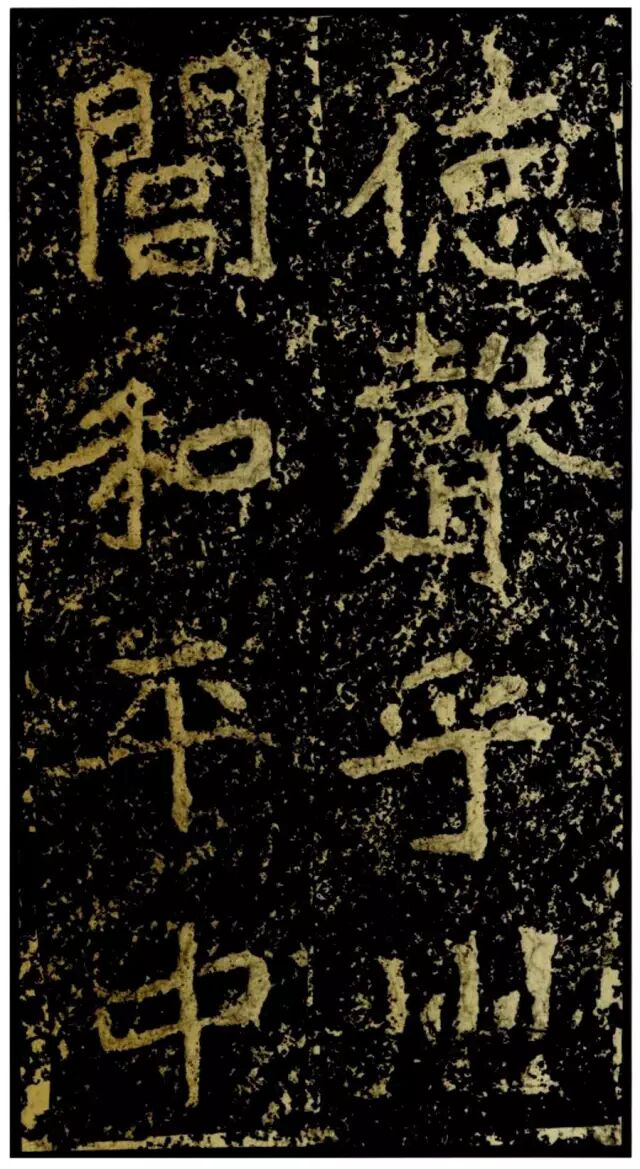 德聲乎州
閭和平中